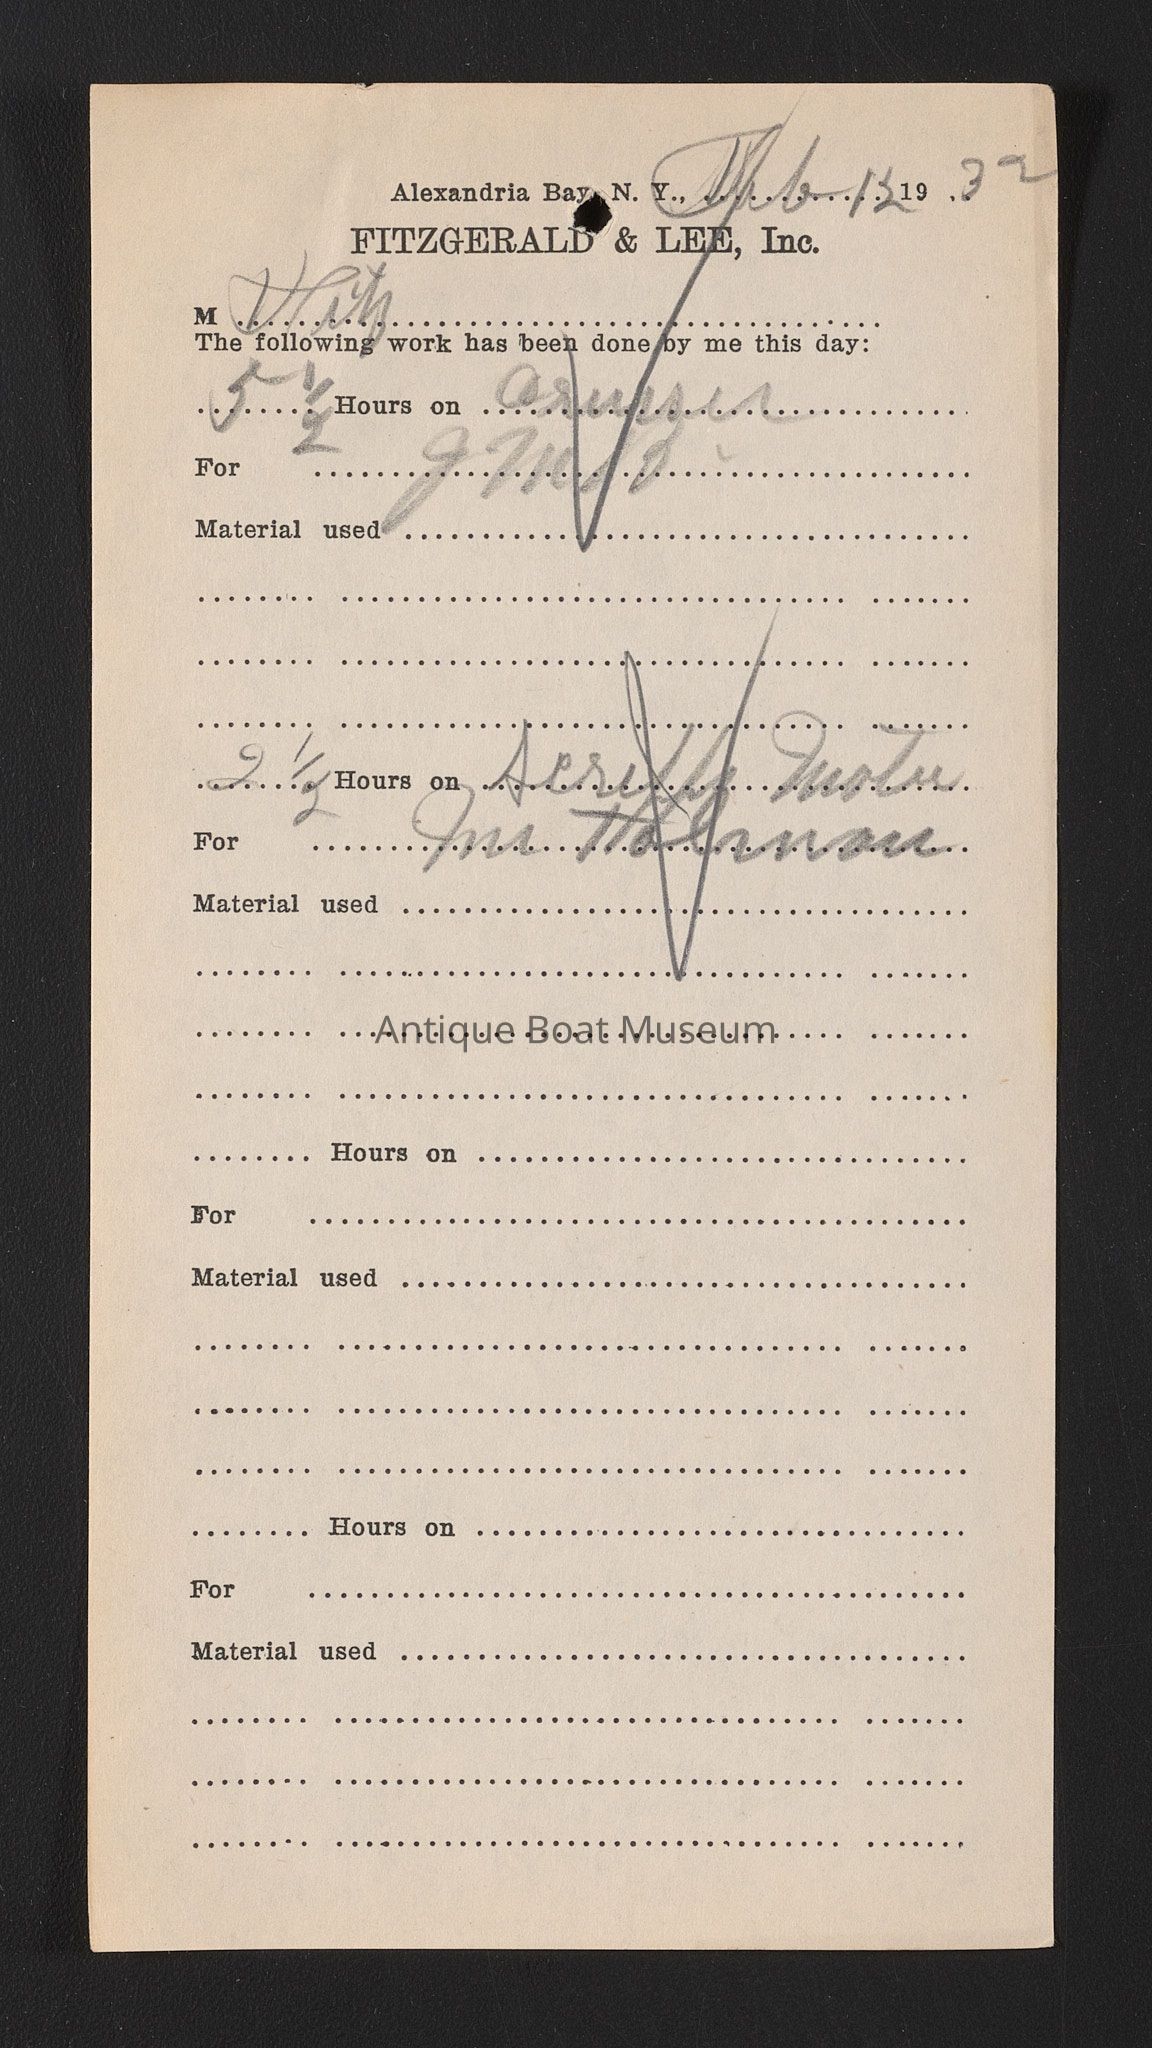 Alexandria Bay, N. Y., Feb 12 19 32
FITZGERALD & LEE, Inc.
M Fitz
The following work has been done by me this day:
5 1/2 Hours on
For
Material used
2 1/2 Hours on Scripps Motor
For Mr Holmon
Material used
Antique Boat Museum
Hours on
For
Material used
Hours on
For
Material used